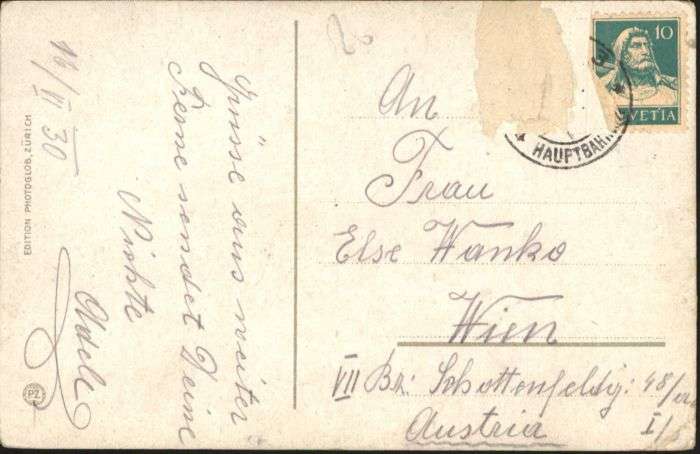 16/VI 30
Grüsse aus weiter
Ferne sendet Deine
Nichte
Adele
EDITION PHOTOGLOB, ZÜRICH
PZ
An
Frau
Else Wanko
Wien
VII Bz: Schottenfeldg: 48/
I/
Austria
10
HELVETIA
HAUPTBAHN